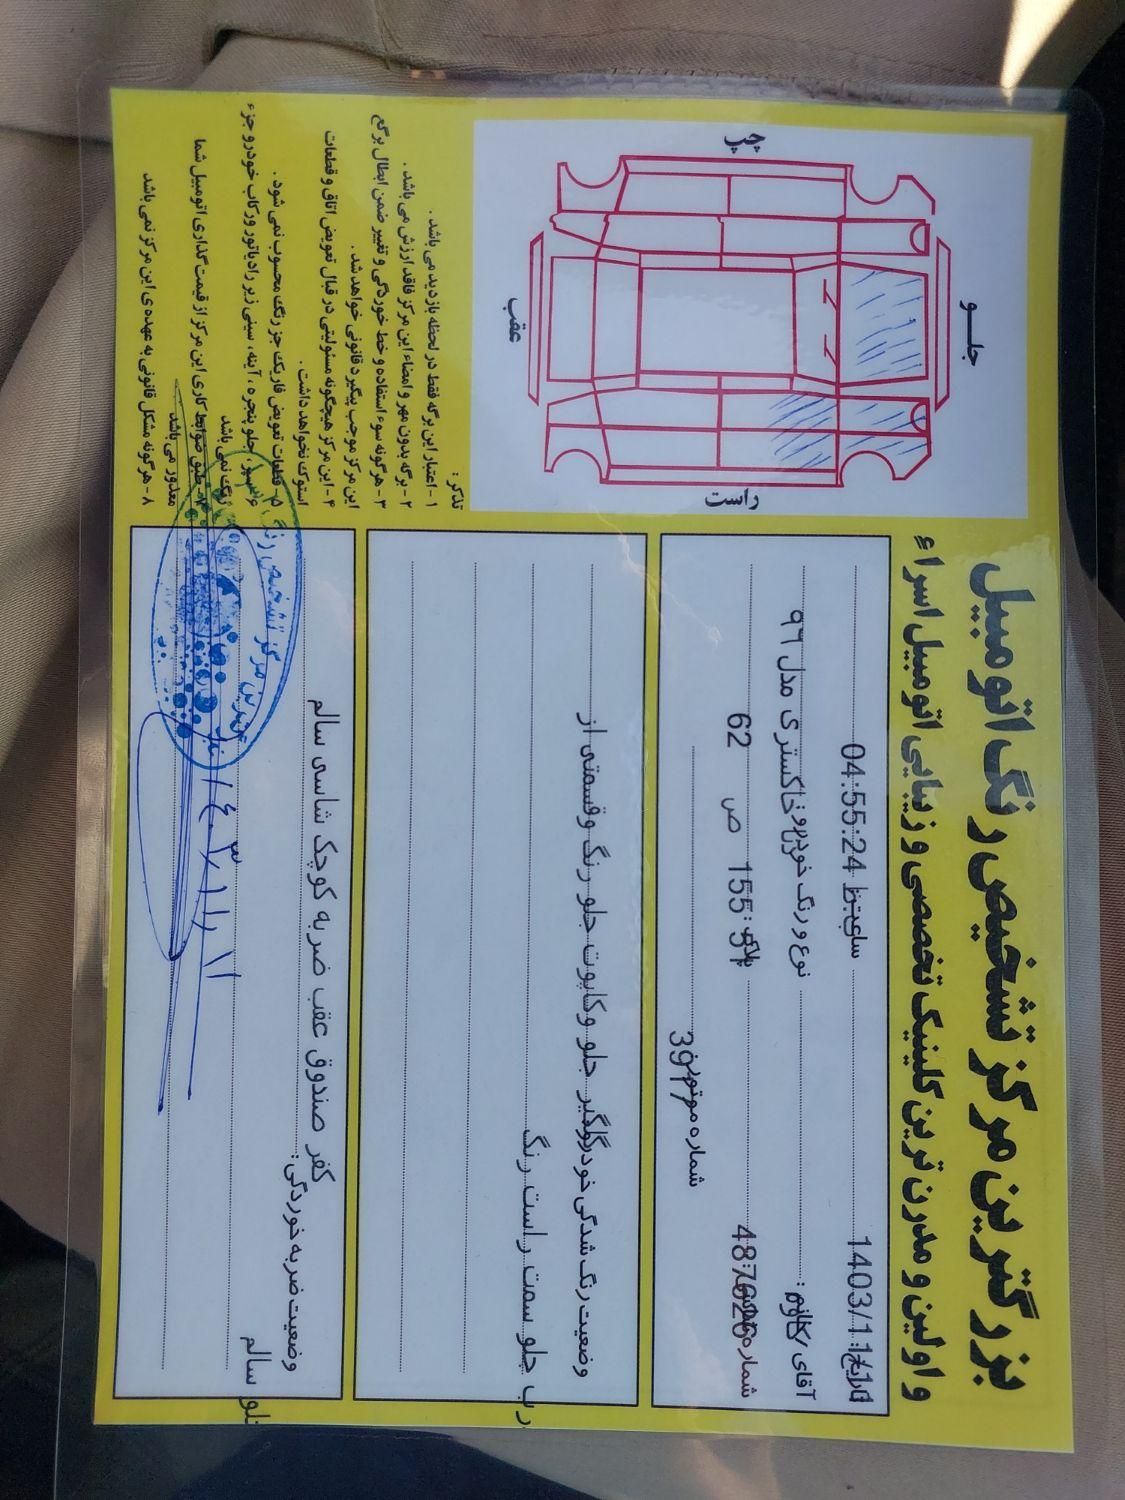 بزرگترین مرکز تشخیص رنگ اتومبیل
و اولین و مدرن ترین کلینیک تخصصی و زیبایی اتومبیل اسراء
تاریخ: 1403/11 ساعت: 04:55:24
آقای / خانم: نوع و رنگ خودرو: خاکستری مدل ۹۶
شماره شاسی: 487626 پلاک: 51 155 ص 62
شماره موتور: 3977
وضعیت رنگ شدگی خودرو: گلگیر جلو وکاپوت جلو رنگ وقسمتی از
رب جلو سمت راست رنگ
وضعیت ضربه خوردگی:
کفر صندوق عقب ضربه کوچک شاسی سالم
جلو سالم
چپ
جلو
عقب
راست
تذکر:
۱- اعتبار این برگه فقط در لحظه بازدید می باشد.
۲- برگه بدون مهر و امضاء این مرکز فاقد ارزش می باشد.
۳- هرگونه سوء استفاده و خط خوردگی و تغییر ضمن ابطال برگه
این مرکز موجب پیگیرد قانونی خواهد شد.
۴- این مرکز هیچگونه مسئولیتی در قبال تعویض اتاق و قطعات
استوک نخواهد داشت.
۵- قطعات تعویض فابریک جز رنگ محسوب نمی شود.
۶- سپر، جلو پنجره، آینه، سینی زیر رادیاتور و رکاب خودرو جزء
رنگ نمی باشد
۷- طبق ضوابط کاری این مرکز از قیمت گذاری اتومبیل شما
معذور می باشد
۸- هرگونه مشکل قانونی به عهده ی این مرکز نمی باشد
مرکز تشخیص رنگ